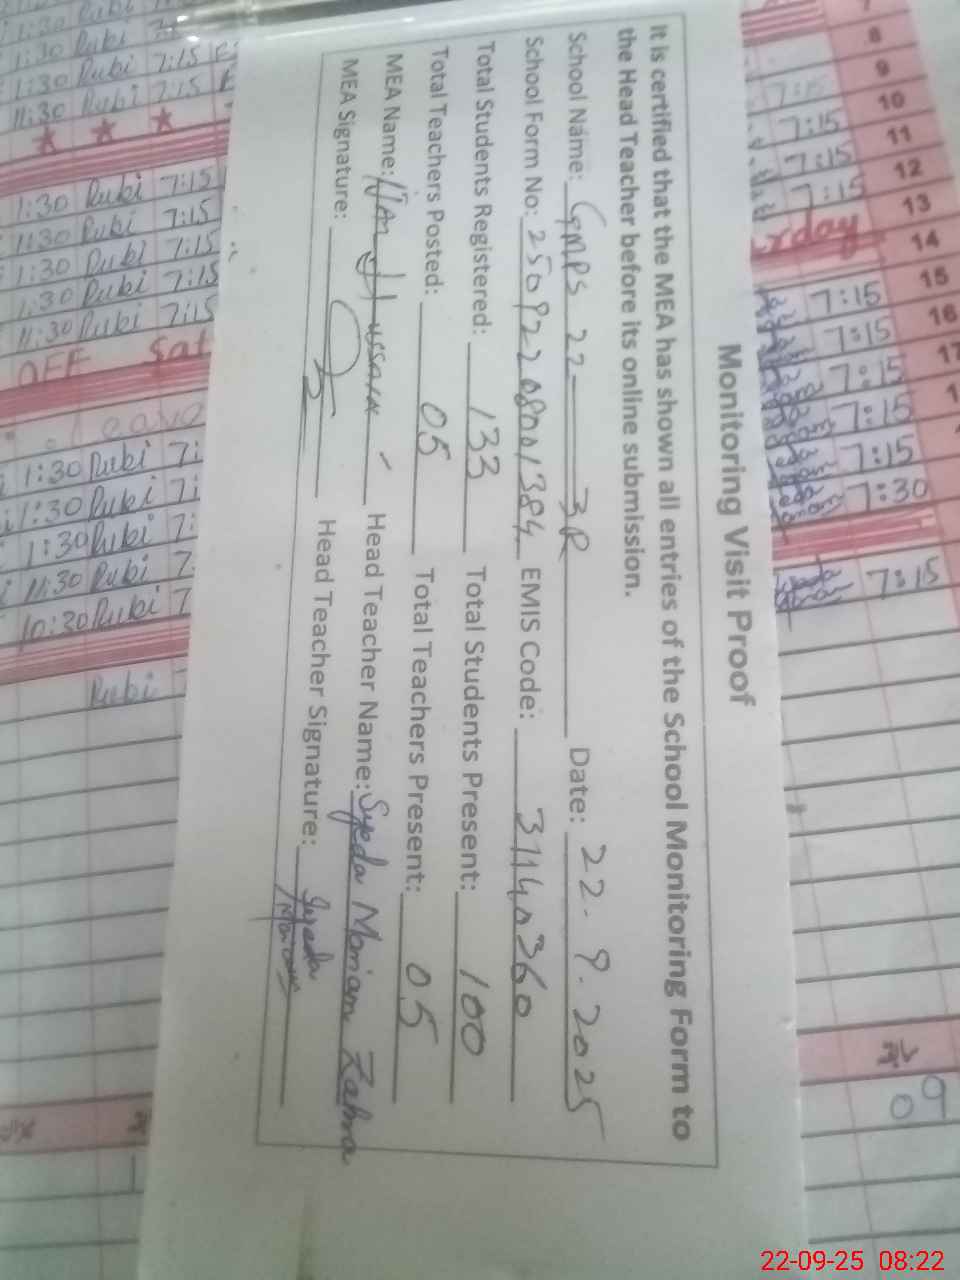 Monitoring Visit Proof
It is certified that the MEA has shown all entries of the School Monitoring Form to
the Head Teacher before its online submission.
School Name: GMPS 22 3R Date: 22. 9. 2025
School Form No: 25092208001384 EMIS Code: 31140360
Total Students Registered: 133 Total Students Present: 100
Total Teachers Posted: 05 Total Teachers Present: 05
MEA Name: Hussain Head Teacher Name: Syeda Mariam Zahra
MEA Signature: Head Teacher Signature: Syeda
1:30 Rubi 7:15
1:30 Rubi 7:15
11:30 Rubi 7:15
1:30 Rubi 7:15
11:30 Rubi 7:15
1:30 Rubi 7:15
1:30 Rubi 7:15
11:30 Rubi 7:15
OFF Sat
1:30 Rubi 7:
1:30 Rubi 7:
1:30 Rubi 7:
11:30 Rubi 7
10:30 Rubi 7
Rubi
7
8
9
10 7:15
11 7:15
12 7:15
13
14
15 7:15
16 7:15
17 7:15
7:15
7:15
7:30
7:15
09
22-09-25 08:22